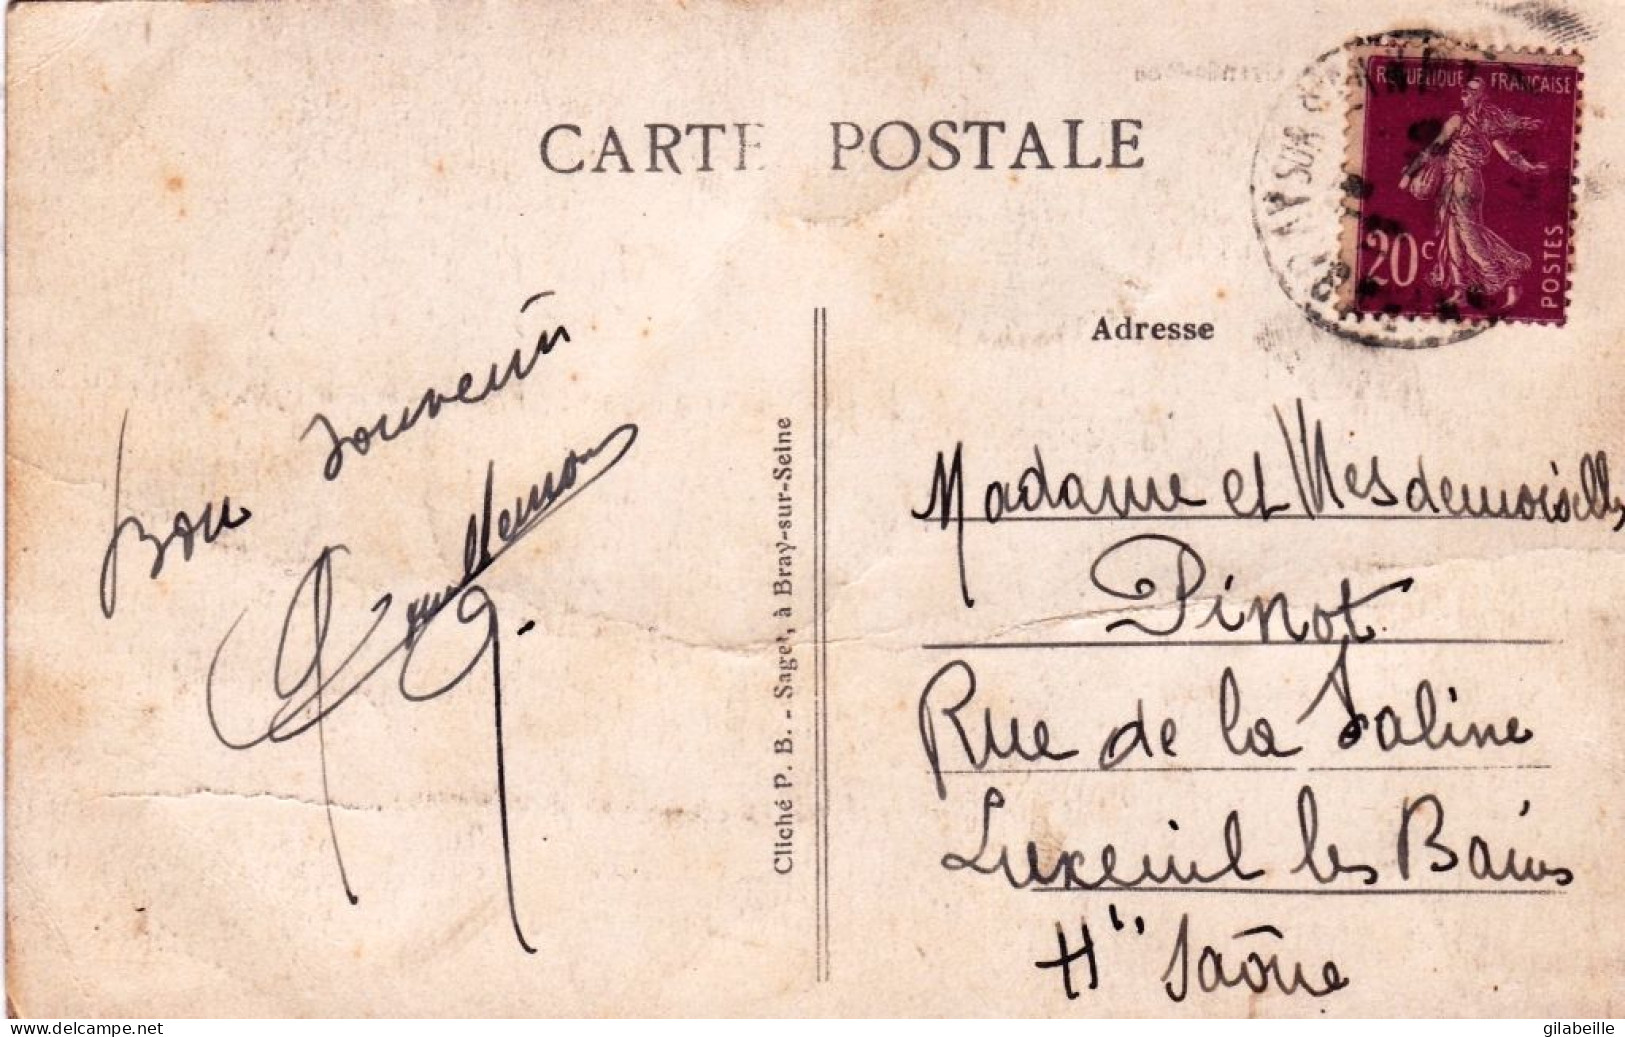 CARTE POSTALE
REPUBLIQUE FRANÇAISE
20c
POSTES
Adresse
Bon souvenir
Cliché P. B. - Saget, à Bray-sur-Seine
Madame et Mesdemoiselles
Pinot
Rue de la Saline
Luxeuil les Bains
Hte Saône
www.delcampe.net
gilabeille